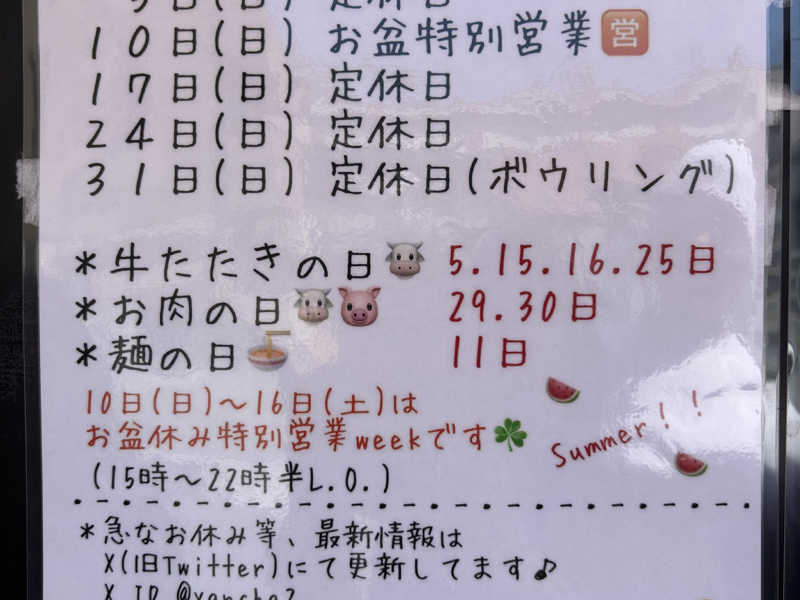 10日(日) お盆特別営業営
17日(日) 定休日
24日(日) 定休日
31日(日) 定休日(ボウリング)
*牛たたきの日 5.15.16.25日
*お肉の日 29.30日
*麺の日 11日
10日(日)〜16日(土)は
お盆休み特別営業weekです
Summer!!
(15時〜22時半L.O.)
*急なお休み等、最新情報は
X(旧Twitter)にて更新してます♪